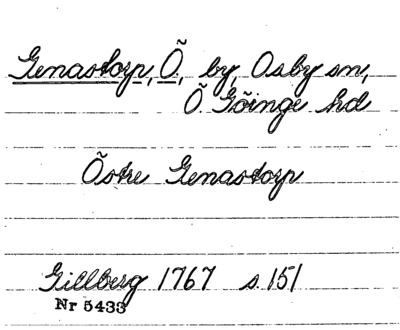 Genastorp, Ö, by, Osby sn,
Ö. Göinge hd
Östre Genastorp
Gillberg 1767 s. 151
Nr 5433